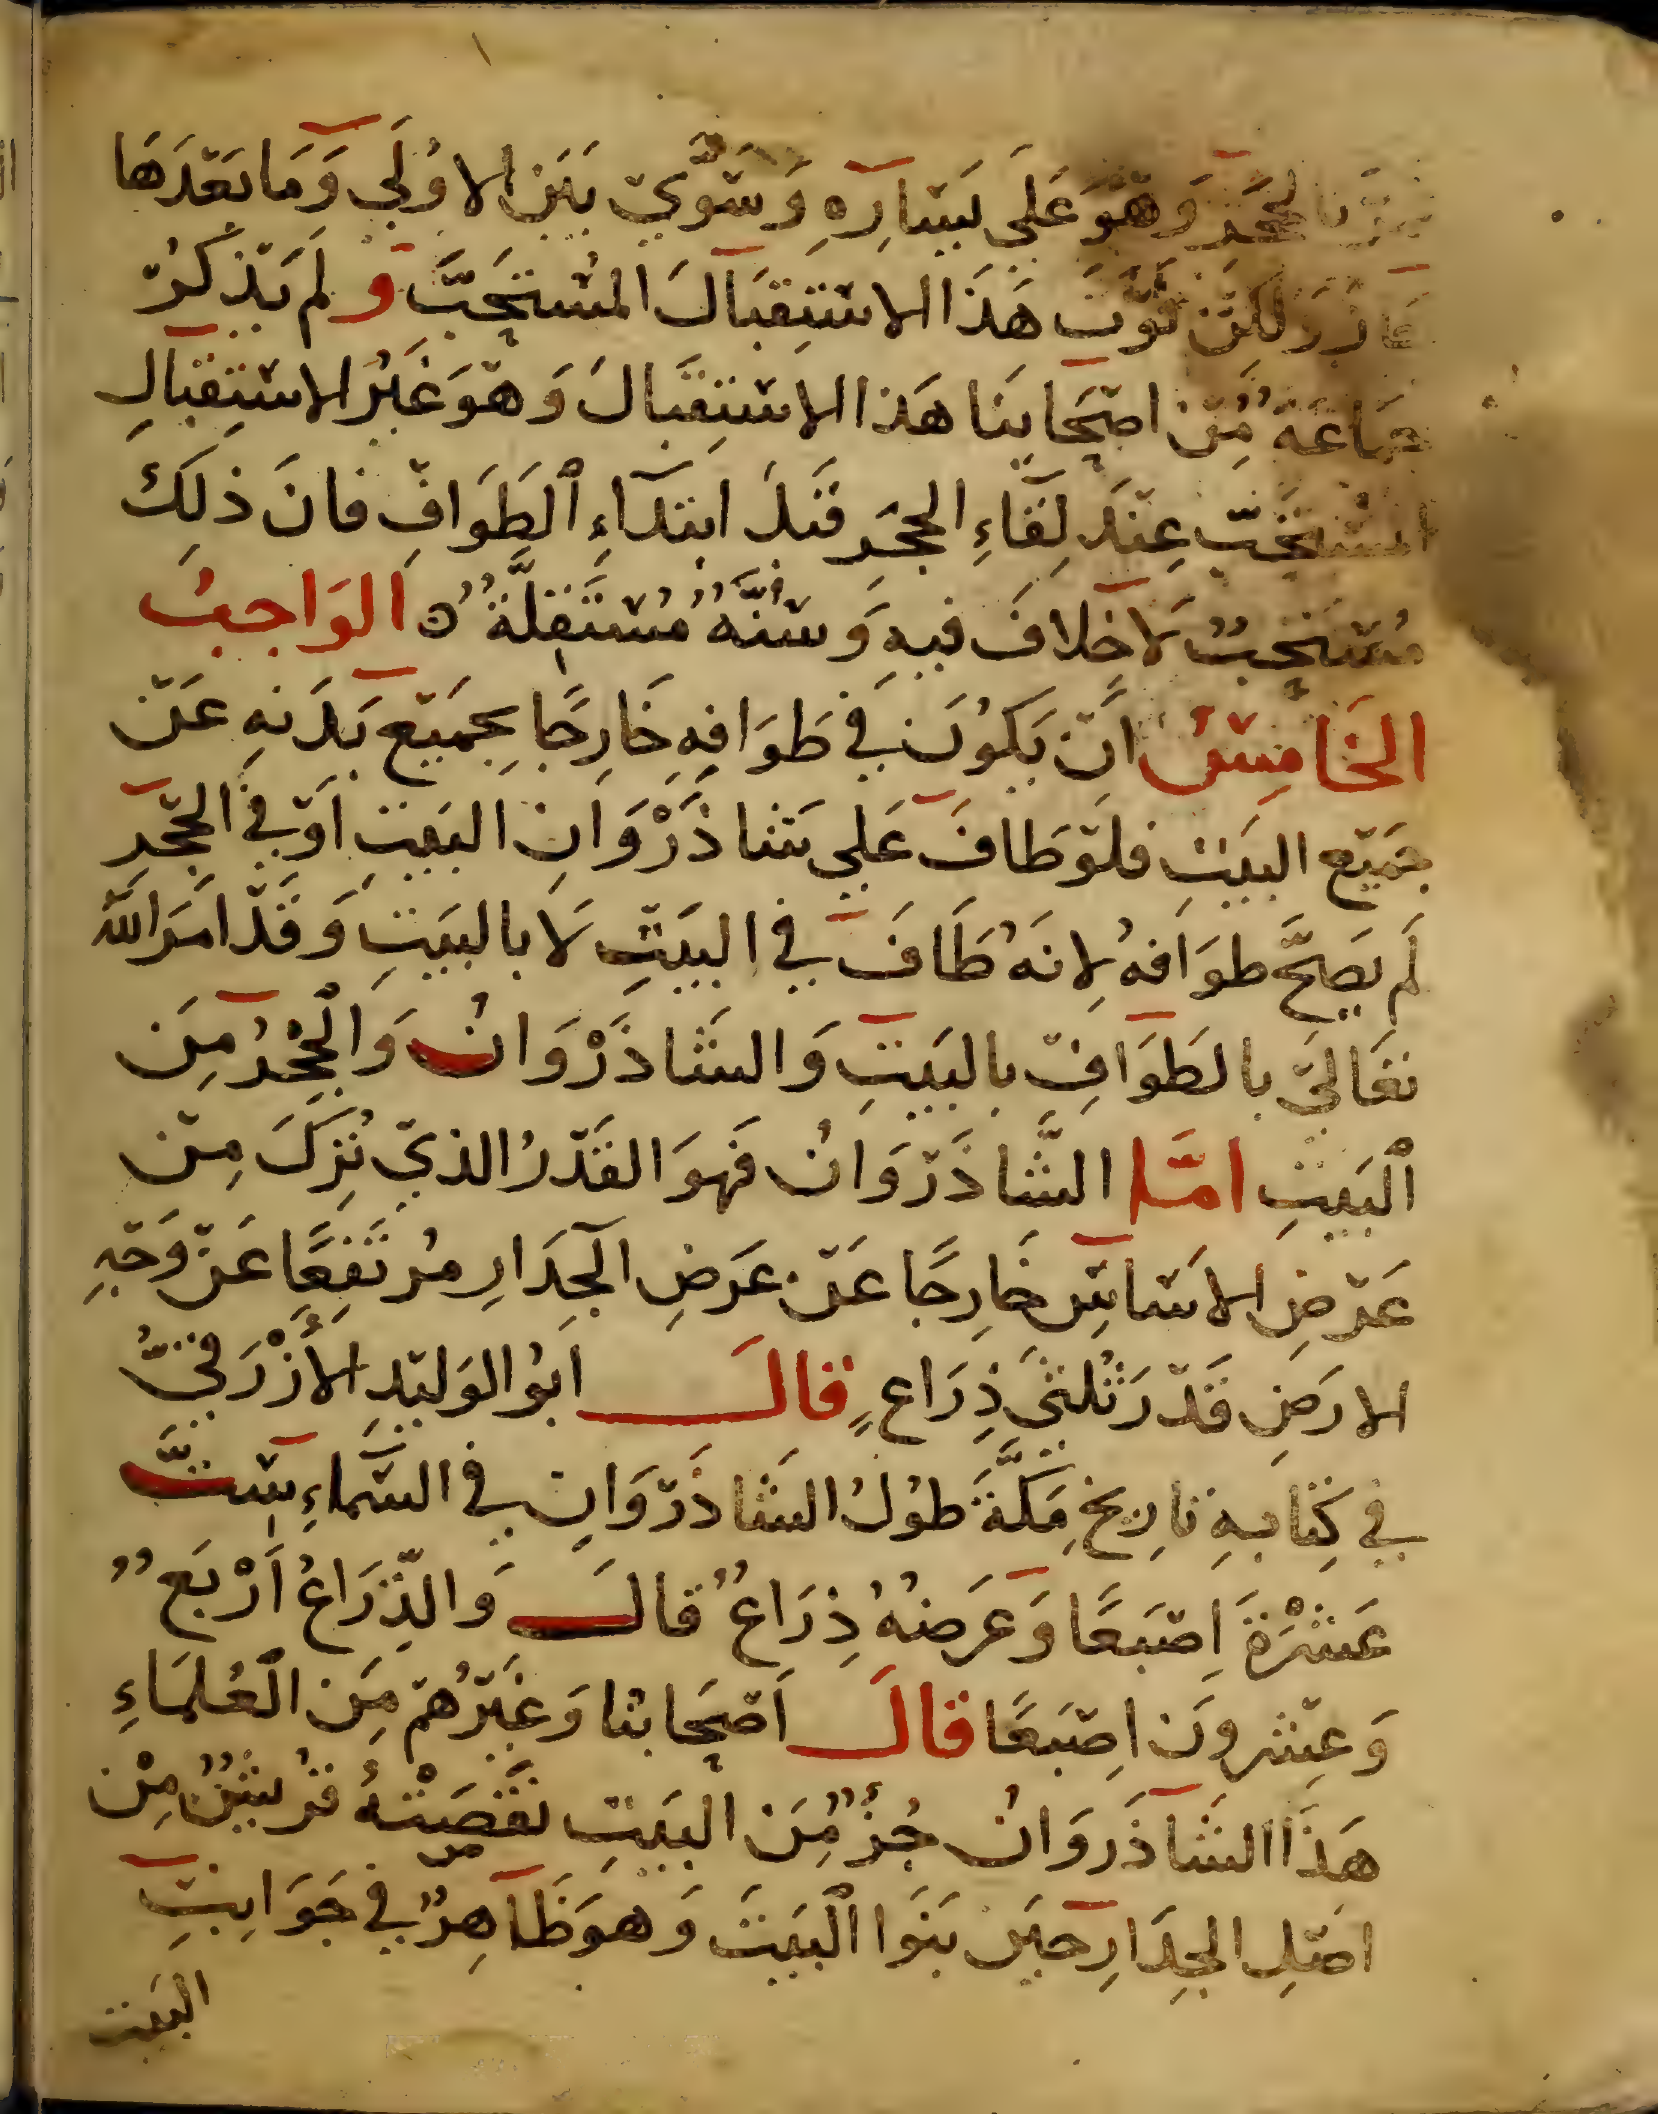 وَهوَ عَلَى يَسَارِهِ وَسَوَّي بَيَنَ الاوُلَي وَمَا بَعَدَهَا
لكِن فَوَّتَ هَذَا الاستِقبَالَ المُستَحَبَّ وَلَم يَذكُر
جَمَاعَةٌ مِّن اصحَابِنَا هَذا الاستِقبَالَ وَهوَ غَيَرُ الاستِقبَالِ
المُستَحَبِّ عِندَ لِقَاءِ الحجَرِ قبَلَ ابتِدَآءِ الطَوَافِ فانَ ذلِكَ
مُستَحِبٌ لَا خلافَ فيهِ وَسُنَّةٌ مُسْتَقِلَّةٌ ه الوَاجِبُ
الخَامِسُ أَن يَكوُنَ فِي طَوَافِهِ خَارِجًا بِجَمَيعِ بَدَنهِ عَن
جَمَيع البيَتِ فلَو طَافَ عَلي شَاذَرْوَانِ البيَتِ اَو فِي الحِجرِ
لَم يَصحَّ طوَافهُ لِانهَُ طَافَ فِي البيَتِ لَا بالبيَتِ وَقَد امَرَ اللّهُ
تعَاليَ بالطَوَافِ بالبَيتِ وَالشَاذَرْوَانُ وَالْحِجْرُ مِنَ
الْبَيتِ امَّا الشَّاذَروَانُ فَهوَ القَدرُ الذي تُرِكَ مِن
عَرضِ الاسَاسِ خَارِجًا عَن عَرَضِ الجِدَارِ مُرتَفِعًا عَن وَجهِ
الارَضِ قَدرَ ثُلثَي ذِرَاعٍ قالَ ابَوُ الوَليدِ الأَزْرَقيُّ
فِي كِتابهِ تارِيخ مَكَّةَ طوُلُ الشَاذَروَانِ فِي السَّمَاءِ سِتَّ
عَشْرَةَ اِصبَعًا وَعَرَضهُ ذِرَاعٌ قالَ وَالذِّرَاعُ أَرْبَعٌ
وَعِشرونَ اصِبَعًا قالَ اَصحَابنا وَغَيَرُهُم مِنَ الْعُلَمَاءِ
هَذَا الشَاذَروَانُ جُزْءٌ مِّنَ البيَتِ نقَصَتْهُ قرُيشٌ مِنْ
اصلِ الجِدَارِ حيَنَ بَنَوا الْبيَتَ وَهوَ ظَاهِرٌ في جَوَانِبِ
البَيت